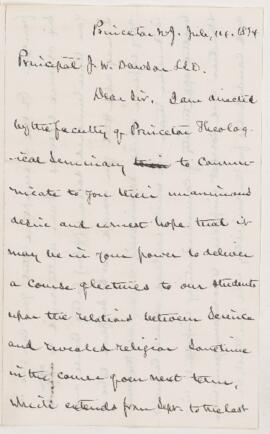 Princeton N.J. July, 14. 1874
Principal J. W. Dawson LL.D.
Dear Sir. I am directed
by the faculty of Princeton Theolog-
ical Seminary to commu-
nicate to you their unanimous
desire and earnest hope that it
may be in your power to deliver
a course of lectures to our students
upon the relations between Science
and revealed religion sometime
in the course of our next term,
which extends from Sept. to the last